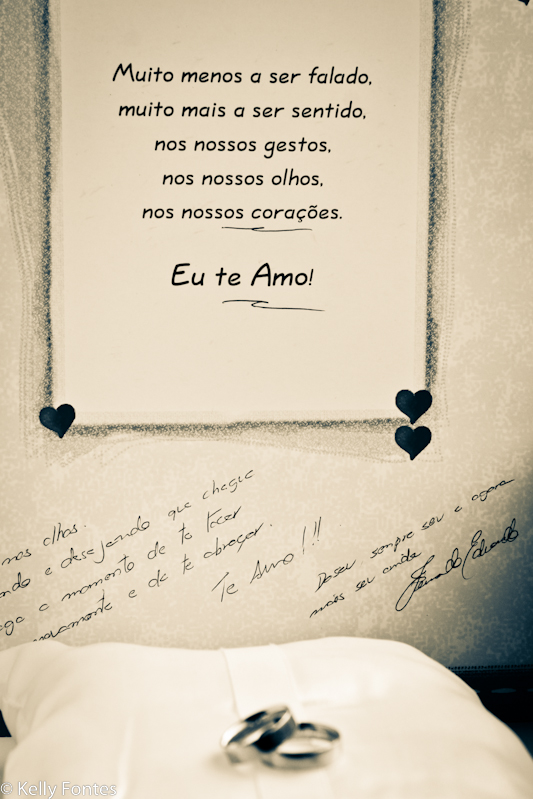 Muito menos a ser falado,
muito mais a ser sentido,
nos nossos gestos,
nos nossos olhos,
nos nossos corações.
Eu te Amo!
nos olhos.
ndo e desejando que chegue
ega o momento de te tocar
novamente e de te abraçar.
Te Amo!!!
Do seu sempre seu e agora
mais seu ainda
Eduardo
© Kelly Fontes